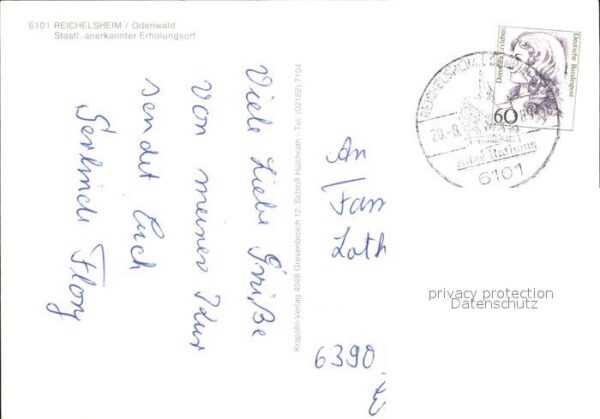 6101 REICHELSHEIM / Odenwald
Staatl. anerkannter Erholungsort
Viele Liebe Grüße
von meiner Kur
sendet Euch
Gerlinde Flory
Krapohl-Verlag 4048 Grevenbroich 12, Schloß Hülchrath - Tel. (02182) 7104
Dorothea Erxleben
Deutsche Bundespost
60
REICHELSHEIM
Altes Rathaus
6101
An
Fam
Loth
6390
privacy protection
Datenschutz